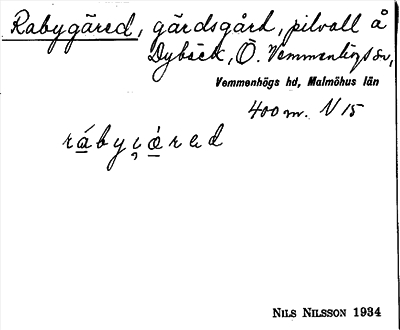 Rabygäred, gärdsgård, pilvall å
Dybäck, Ö. Vemmenhögs sn,
Vemmenhögs hd, Malmöhus län
400 m. N 15
NILS NILSSON 1934